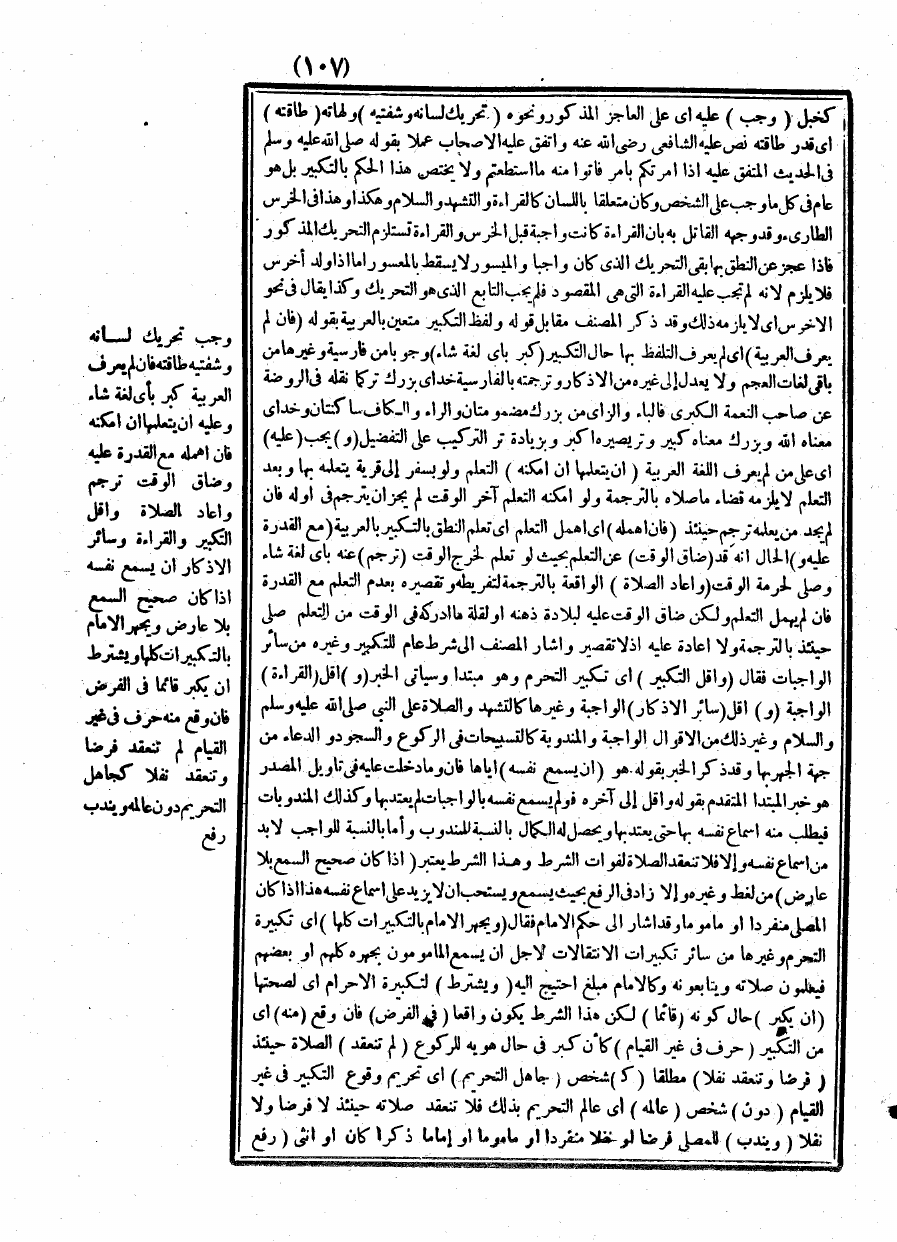 (١٠٧)
كخبل ( وجب ) عليه اى على العاجز المذكور ونحوه ( تحريك لسانه وشفتيه ) ولهاته ( طاقته )
اى قدر طاقته نص عليه الشافعى رضى الله عنه واتفق عليه الاصحاب عملا بقوله صلى الله عليه وسلم
فى الحديث المتفق عليه اذا امرتكم بامر فاتوا منه ما استطعتم ولا يختص هذا الحكم بالتكبير بل هو
عام فى كل ما وجب على الشخص وكان متعلقا باللسان كالقراءة والتشهد والسلام وهكذا وهذا فى الخرس
الطارىء وقد وجهه القائل به بان القراءة كانت واجبة قبل الخرس والقراءة تستلزم التحريك المذكور
فاذا عجز عن النطق بها بقى التحريك الذى كان واجبا والميسور لا يسقط بالمعسور اما اذا ولد أخرس
فلا يلزم لانه لم تجب عليه القراءة التى هى المقصود فلم يجب التابع الذى هو التحريك وكذا يقال فى نحو
الاخرس اى لا يلزمه ذلك وقد ذكر المصنف مقابل قوله ولفظ التكبير متعين بالعربية بقوله (فان لم
يعرف العربية) اى لم يعرف التلفظ بها حال التكبير (كبر باى لغة شاء) وجوبا من فارسية وغيرها من
باقى لغات العجم ولا يعدل إلى غيره من الاذكار وترجمته بالفارسية خداى بزرك تركا نقله فى الروضة
عن صاحب النعمة الكبرى فالباء والزاى من بزرك مضمومتان والراء والكاف ساكنتان وخداى
معناه الله وبزرك معناه كبير وتريصيره اكبر وبزيادة تر التركيب على التفضيل (و) يجب (عليه)
اى على من لم يعرف اللغة العربية ( ان يتعلمها ان امكنه ) التعلم ولو بسفر إلى قرية يتعلمه بها وبعد
التعلم لا يلزمه قضاء ما صلاه بالترجمة ولو امكنه التعلم آخر الوقت لم يجز ان يترجم فى اوله فان
لم يجد من يعلمه ترجم حينئذ (فان اهمله) اى اهمل التعلم اى تعلم النطق بالتكبير بالعربية (مع القدرة
عليه و) الحال انه قد (ضاق الوقت) عن التعلم بحيث لو تعلم لخرج الوقت (ترجم) عنه باى لغة شاء
وصلى لحرمة الوقت (واعاد الصلاة ) الواقعة بالترجمة لتفريطه وتقصيره بعدم التعلم مع القدرة
فان لم يهمل التعلم ولكن ضاق الوقت عليه لبلادة ذهنه او لقلة ما ادركه فى الوقت من التعلم صلى
حينئذ بالترجمة ولا اعادة عليه اذ لا تقصير واشار المصنف الى شرط عام للتكبير وغيره من سائر
الواجبات فقال (واقل التكبير ) اى تكبير التحرم وهو مبتدا وسياتى الخبر (و ) اقل (القراءة )
الواجبة (و) اقل (سائر الاذكار) الواجبة وغيرها كالتشهد والصلاة على النبى صلى الله عليه وسلم
والسلام وغير ذلك من الاقوال الواجبة والمندوبة كالتسبيحات فى الركوع والسجود والدعاء من
جهة الجهر بها وقد ذكر الخبر بقوله هو (ان يسمع نفسه) اياها فان وما دخلت عليه فى تاويل المصدر
هو خبر المبتدا المتقدم بقوله واقل إلى آخره فلو لم يسمع نفسه بالواجبات لم يعتد بها وكذلك المندوبات
فيطلب منه اسماع نفسه بها حتى يعتد بها ويحصل له الكمال بالنسبة للمندوب وأما بالنسبة للواجب لابد
من اسماع نفسه وإلا فلا تنعقد الصلاة لفوات الشرط وهذا الشرط يعتبر ( اذا كان صحيح السمع بلا
عارض) من لغط وغيره وإلا زاد فى الرفع بحيث يسمع ويستحب ان لا يزيد على اسماع نفسه هذا اذا كان
المصلى منفردا او ماموما وقد اشار الى حكم الامام فقال (ويجهر الامام بالتكبيرات كلها ) اى تكبيرة
التحرم وغيرها من سائر تكبيرات الانتقالات لاجل ان يسمع المامومون بجهره كلهم او بعضهم
فيعلمون صلاته ويتابعونه وكالامام مبلغ احتيج اليه ( ويشترط ) لتكبيرة الاحرام اى لصحتها
(ان يكبر ) حال كونه (قائما ) لكن هذا الشرط يكون واقعا ( فى الفرض) فان وقع (منه) اى
من التكبير ( حرف فى غير القيام ) كأن كبر فى حال هويه للركوع ( لم تنعقد ) الصلاة حينئذ
( فرضا وتنعقد نفلا ) مطلقا ( كـ ) شخص ( جاهل التحريم ) اى تحريم وقوع التكبير فى غير
القيام ( دون ) شخص ( عالمه ) اى عالم التحريم بذلك فلا تنعقد صلاته حينئذ لا فرضا ولا
نفلا ( ويندب ) للمصلى فرضا او نفلا منفردا او ماموما او إماما ذكرا كان او انثى ( رفع
وجب تحريك لسانه
وشفتيه طاقته فان لم يعرف
العربية كبر بأى لغة شاء
وعليه ان يتعلمها ان امكنه
فان اهمله مع القدرة عليه
وضاق الوقت ترجم
واعاد الصلاة واقل
التكبير والقراءة وسائر
الاذكار ان يسمع نفسه
اذا كان صحيح السمع
بلا عارض ويجهر الامام
بالتكبيرات كلها ويشترط
ان يكبر قائما فى الفرض
فان وقع منه حرف فى غير
القيام لم تنعقد فرضا
وتنعقد نفلا كجاهل
التحريم دون عالمه ويندب
رفع